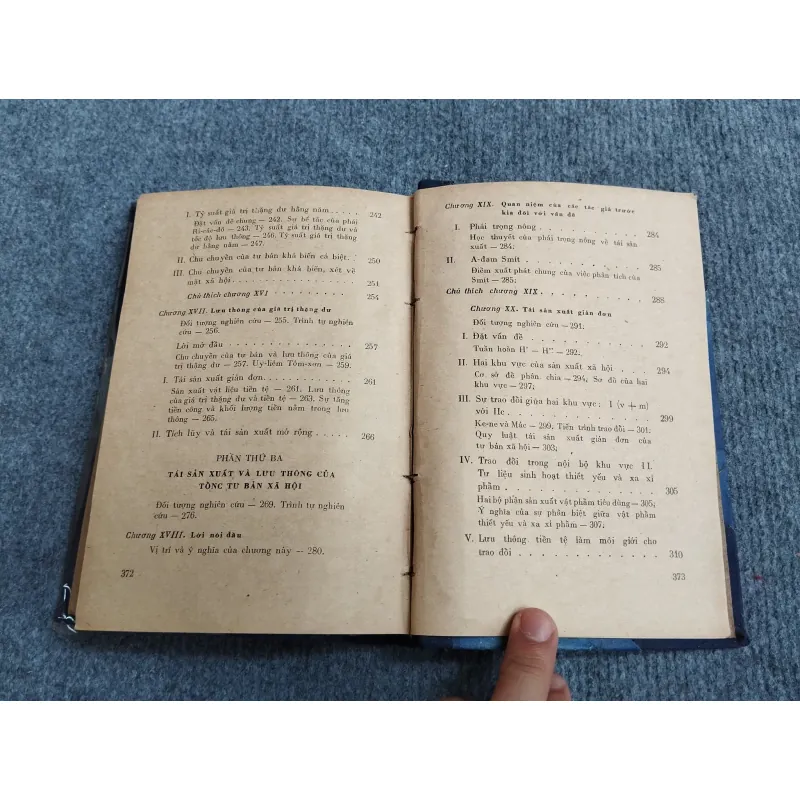 I. Tỷ suất giá trị thặng dư hằng năm . . . . . 242
Đặt vấn đề chung — 242. Sự bế tắc của phái
Ri-các-đô — 243. Tỷ suất giá trị thặng dư và
tốc độ lưu thông — 246. Tỷ suất giá trị thặng
dư hằng năm — 247.
II. Chu chuyển của tư bản khả biến cá biệt. 250
III. Chu chuyển của tư bản khả biến, xét về
mặt xã hội . . . . . . . . . . . . 251
Chú thích chương XVI . . . . . . . . . . 254
Chương XVII. Lưu thông của giá trị thặng dư
Đối tượng nghiên cứu — 255. Trình tự nghiên
cứu — 256.
Lời mở đầu . . . . . . . . . . . . . 257
Chu chuyển của tư bản và lưu thông của giá
trị thặng dư — 257. Uy-liêm Tôm-xơn — 259.
I. Tái sản xuất giản đơn. . . . . . . . . . 261
Sản xuất vật liệu tiền tệ — 261. Lưu thông
của giá trị thặng dư và tiền tệ — 263. Sự tăng
tiền công và khối lượng tiền nằm trong lưu
thông — 265.
II. Tích lũy và tái sản xuất mở rộng . . . . . 266
PHẦN THỨ BA
TÁI SẢN XUẤT VÀ LƯU THÔNG CỦA
TỔNG TƯ BẢN XÃ HỘI
Đối tượng nghiên cứu — 269. Trình tự nghiên
cứu — 276.
Chương XVIII. Lời nói đầu
Vị trí và ý nghĩa của chương này — 280.
372
Chương XIX. Quan niệm của các tác giả trước
kia đối với vấn đề
I. Phái trọng nông . . . . . . . . . . . 284
Học thuyết của phái trọng nông về tái sản
xuất — 284;
II. A-đam Smit . . . . . . . . . . . . . 285
Điểm xuất phát chung của việc phân tích của
Smit — 285;
Chú thích chương XIX . . . . . . . . . . . 288
Chương XX. Tái sản xuất giản đơn
Đối tượng nghiên cứu — 291;
I. Đặt vấn đề . . . . . . . . . . . . . 292
Tuần hoàn H' — H'' — 292;
II. Hai khu vực của sản xuất xã hội . . . . 294
Cơ sở để phân chia — 294, Sơ đồ của hai
khu vực — 297;
III. Sự trao đổi giữa hai khu vực : I (v + m)
với IIc . . . . . . . . . . . . . . 299
Ke-ne và Mác — 299. Tiến trình trao đổi — 301;
Quy luật tái sản xuất giản đơn của
tư bản xã hội — 303;
IV. Trao đổi trong nội bộ khu vực II.
Tư liệu sinh hoạt thiết yếu và xa xỉ
phẩm . . . . . . . . . . . . . . . 305
Hai bộ phận sản xuất vật phẩm tiêu dùng — 305;
Ý nghĩa của sự phân biệt giữa vật phẩm
thiết yếu và xa xỉ phẩm — 307;
V. Lưu thông tiền tệ làm môi giới cho
trao đổi . . . . . . . . . . . . . 310
373